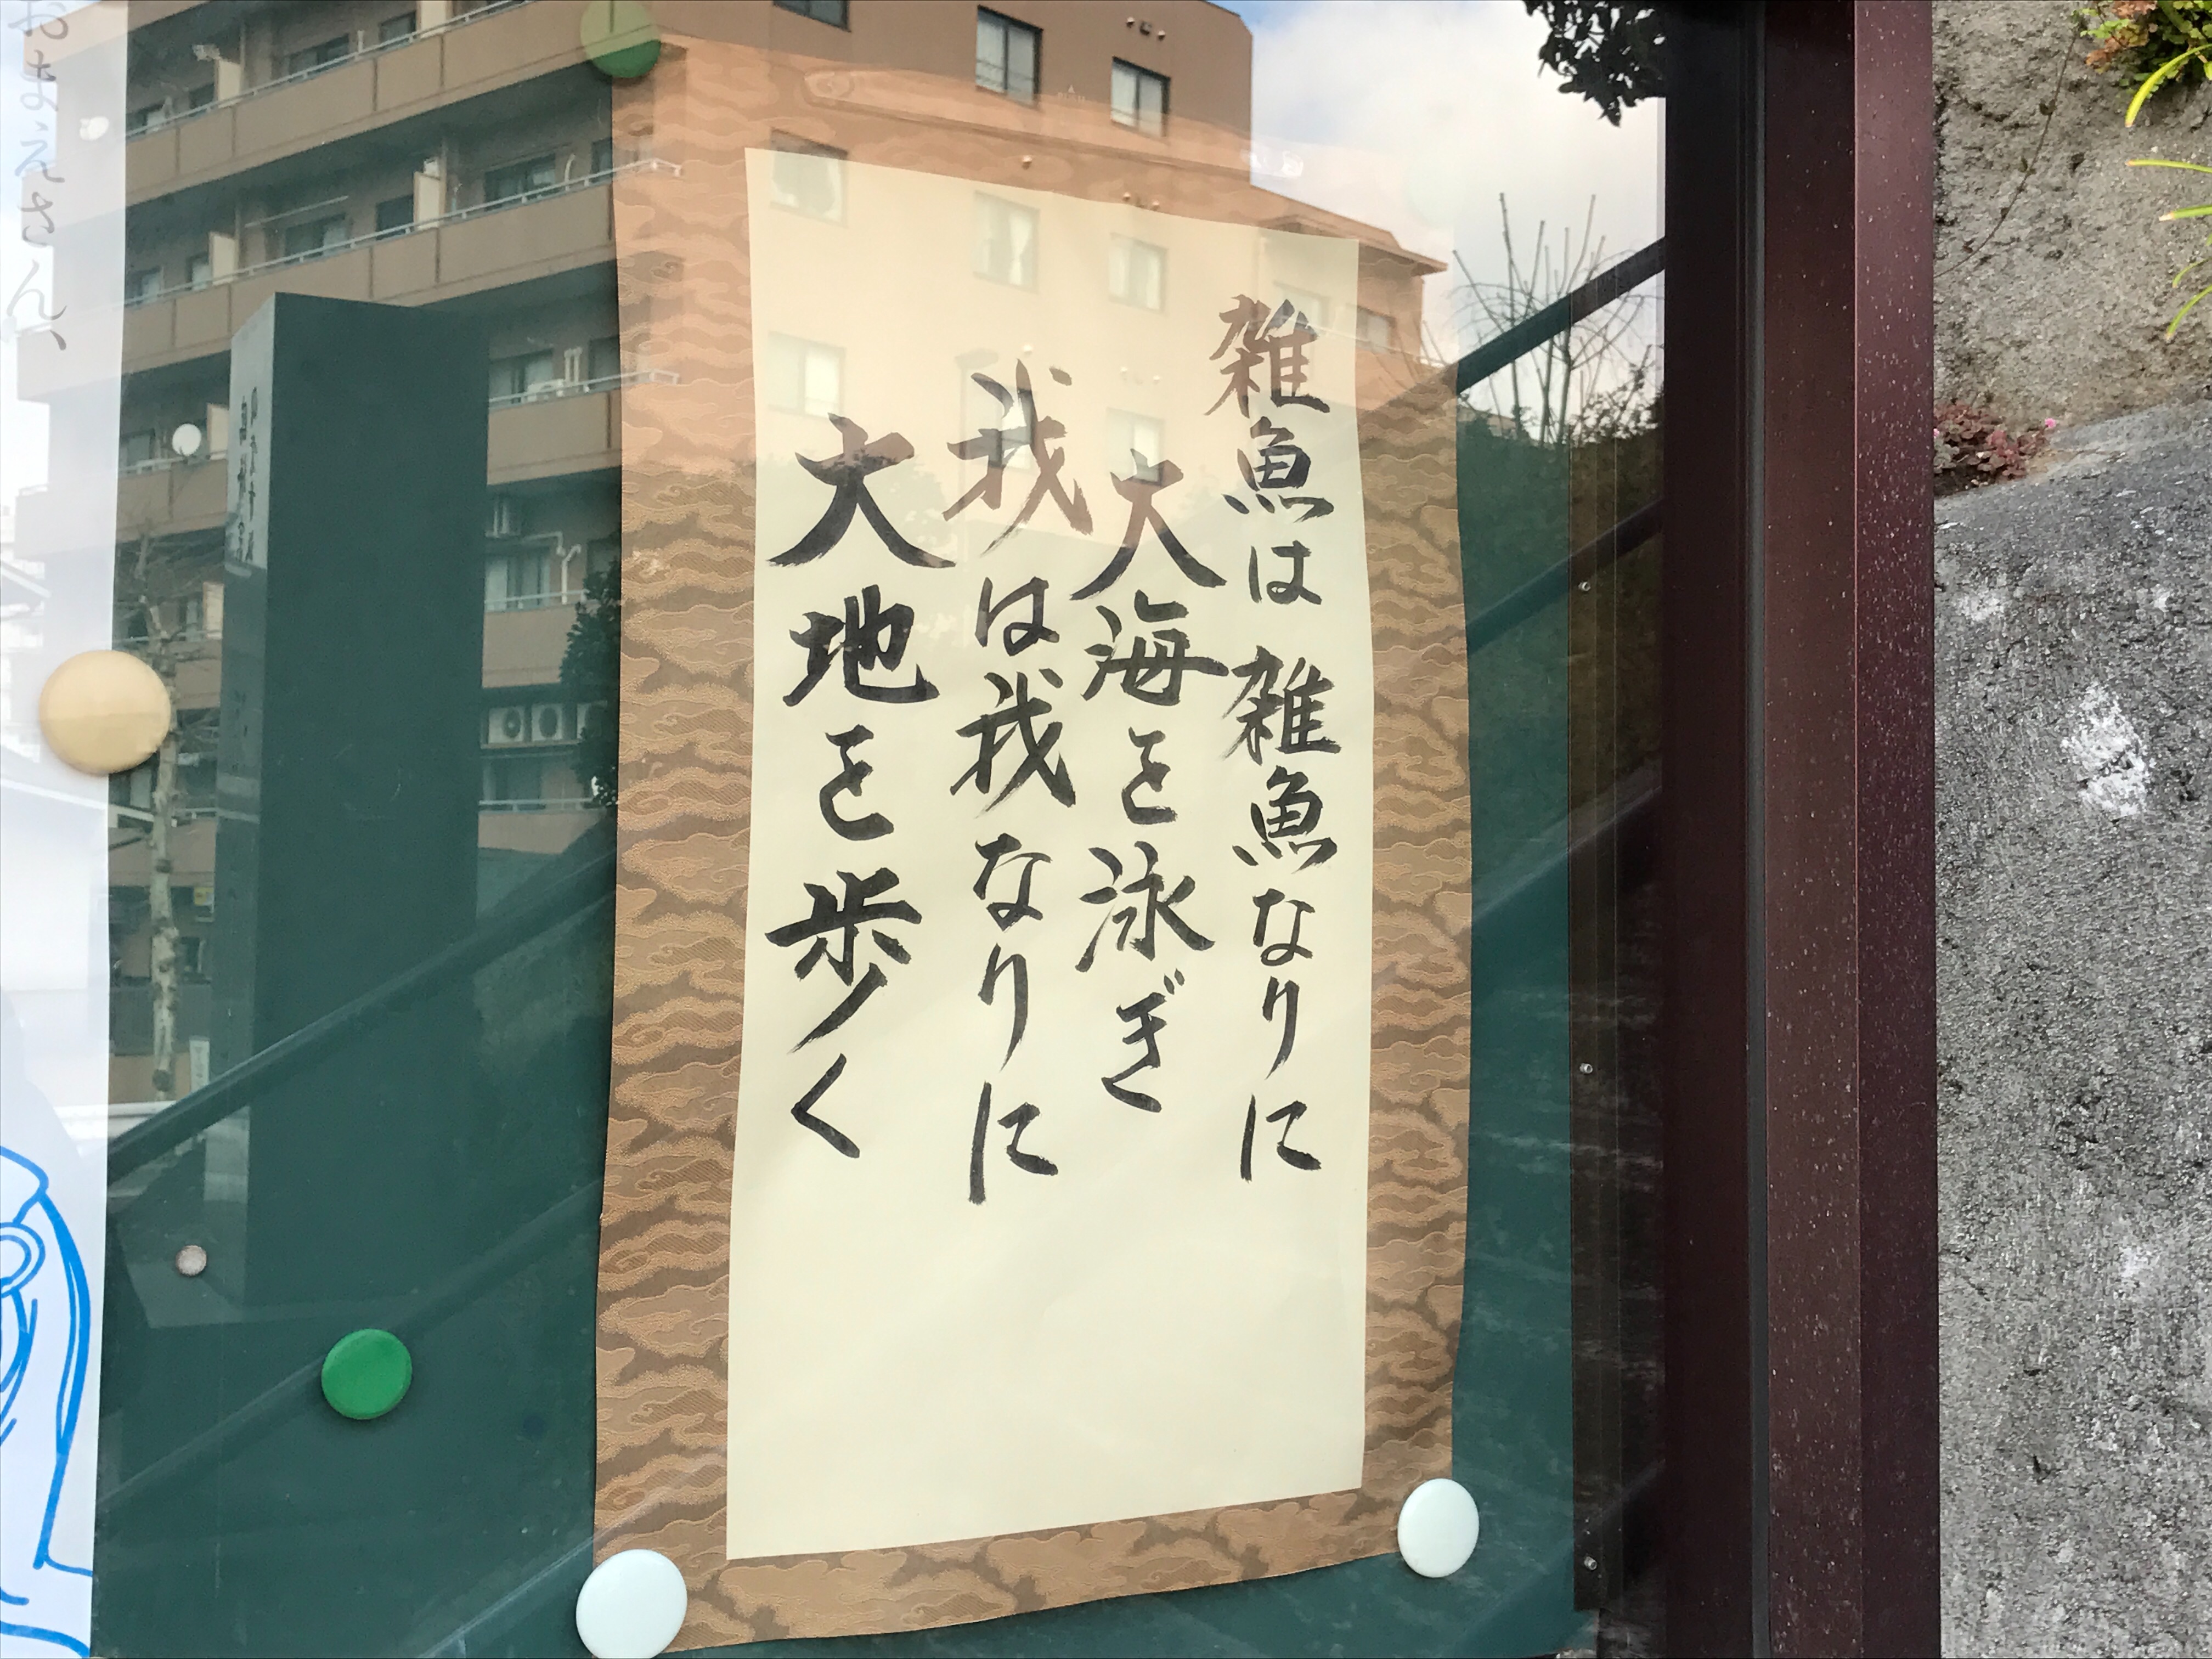 雑魚は 雑魚なりに
大海を泳ぎ
我は我なりに
大地を歩く
おまえさん、